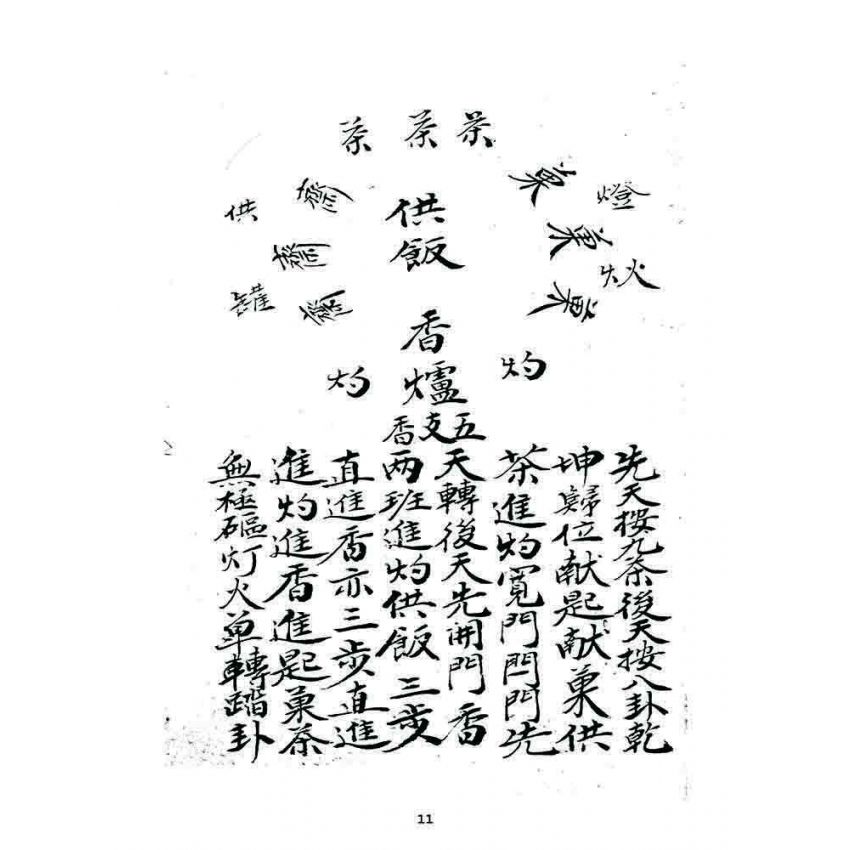 茶 茶 茶
菓 燈
菓
火
菓
供飯
齋
供
齋
齋
香爐
灼
灼
五支香
先天按九茶後天按八卦乾
坤歸位献是献菓供
茶進灼寬門閂門先
天轉後天先開門香
两班進灼供飯三步
直進香亦三步直進
進灼進香進是菓茶
無極磘灯火单轉踏卦
11